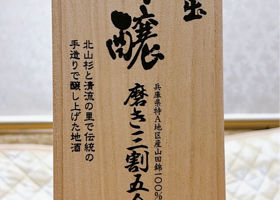 醸
兵庫県特A地区産山田錦100%
磨き三割五分
北山杉と清流の里で伝統の
手造りで醸し上げた地酒